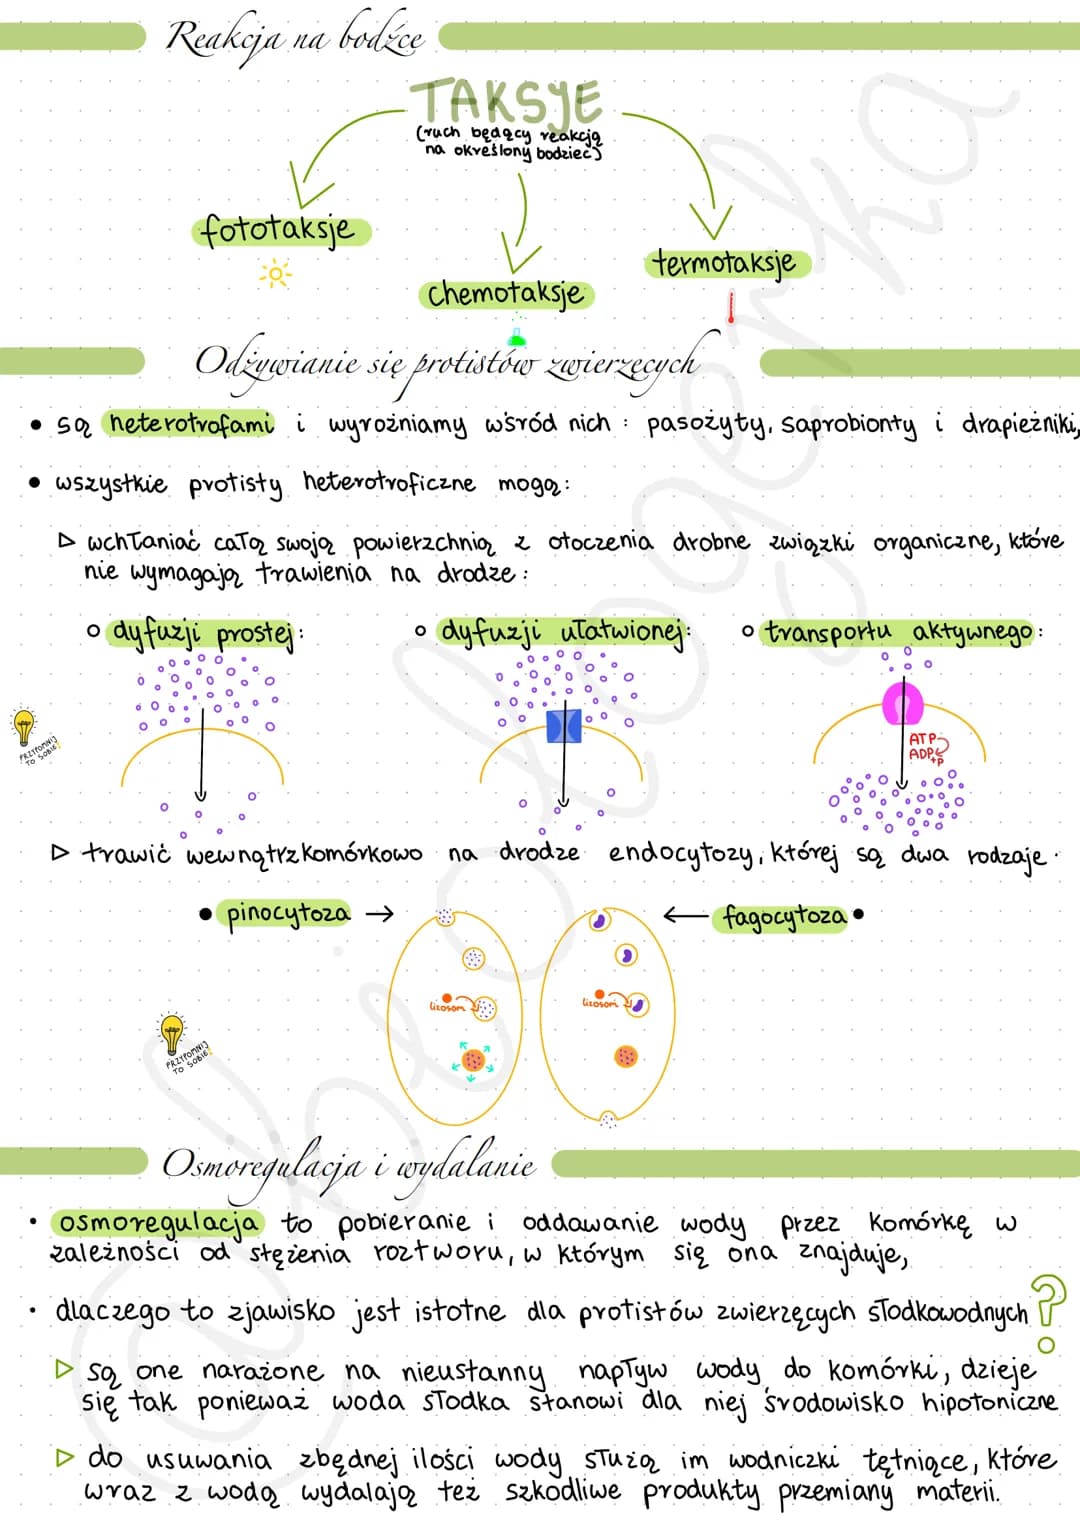 Reakcja na bodźce
TAKSJE
(ruch będący reakcją
na określony bodziec)
fototaksje
termotaksje
chemotaksje
Odżywianie się protistów zwierzęcych
• są heterotrofami i wyrożniamy wśród nich : pasożyty, saprobionty i drapieżniki,
• wszystkie protisty heterotroficzne mogą:
▷ wchłaniać całą swoją powierzchnią z otoczenia drobne związki organiczne, które
nie wymagają trawienia na drodze :
○ dyfuzji prostej: ○ dyfuzji ułatwionej: ○ transportu aktywnego:
PRZYPOMNIJ
TO SOBIE!
ATP
ADP
+P
▷ trawić wewnątrzkomórkowo na drodze endocytozy, której są dwa rodzaje
• pinocytoza → ← fagocytoza •
lizosom lizosom
PRZYPOMNIJ
TO SOBIE!
Osmoregulacja i wydalanie
• osmoregulacja to pobieranie i oddawanie wody przez komórkę w
zależności od stężenia roztworu, w którym się ona znajduje,
• dlaczego to zjawisko jest istotne dla protistów zwierzęcych słodkowodnych ?
▷ są one narażone na nieustanny napływ wody do komórki, dzieje
się tak ponieważ woda słodka stanowi dla niej środowisko hipotoniczne
▷ do usuwania zbędnej ilości wody służą im wodniczki tętniące, które
wraz z wodą wydalają też szkodliwe produkty przemiany materii.